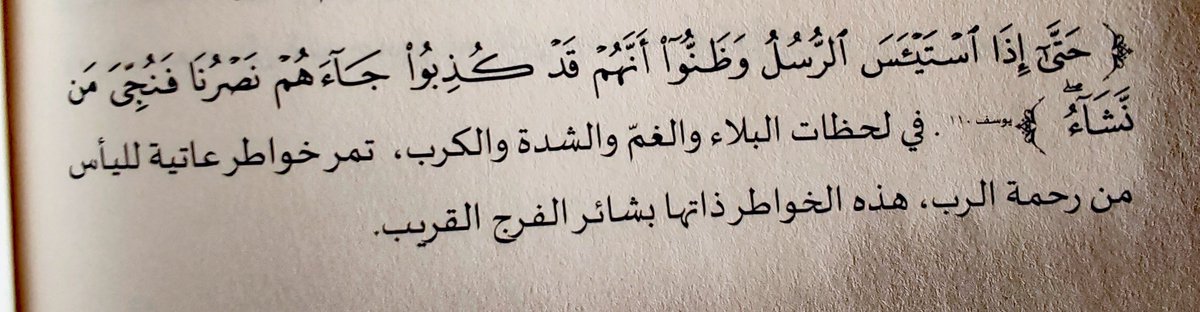 ﴿ حَتَّىٰٓ إِذَا ٱسْتَيْـَٔسَ ٱلرُّسُلُ وَظَنُّوٓا۟ أَنَّهُمْ قَدْ كُذِبُوا۟ جَآءَهُمْ نَصْرُنَا فَنُجِّىَ مَن
نَّشَآءُ ۖ ﴾ يوسف ١١٠ . في لحظات البلاء والغمّ والشدة والكرب، تمر خواطر عاتية لليأس
من رحمة الرب، هذه الخواطر ذاتها بشائر الفرج القريب.